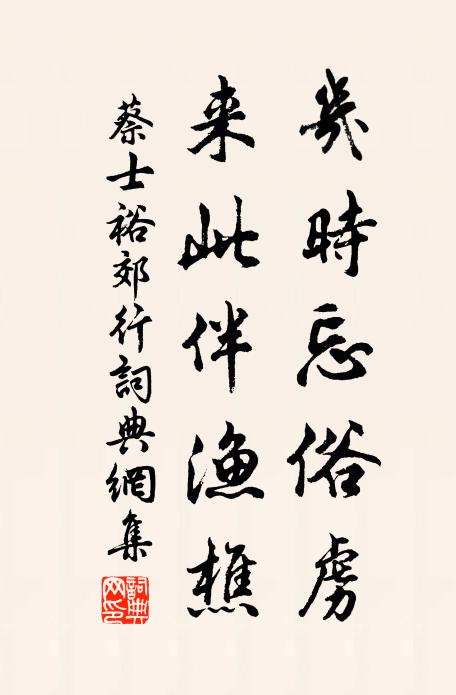 幾時忘俗虜
来此伴漁樵
蔡士裕郊行詞典網集
詞典网印